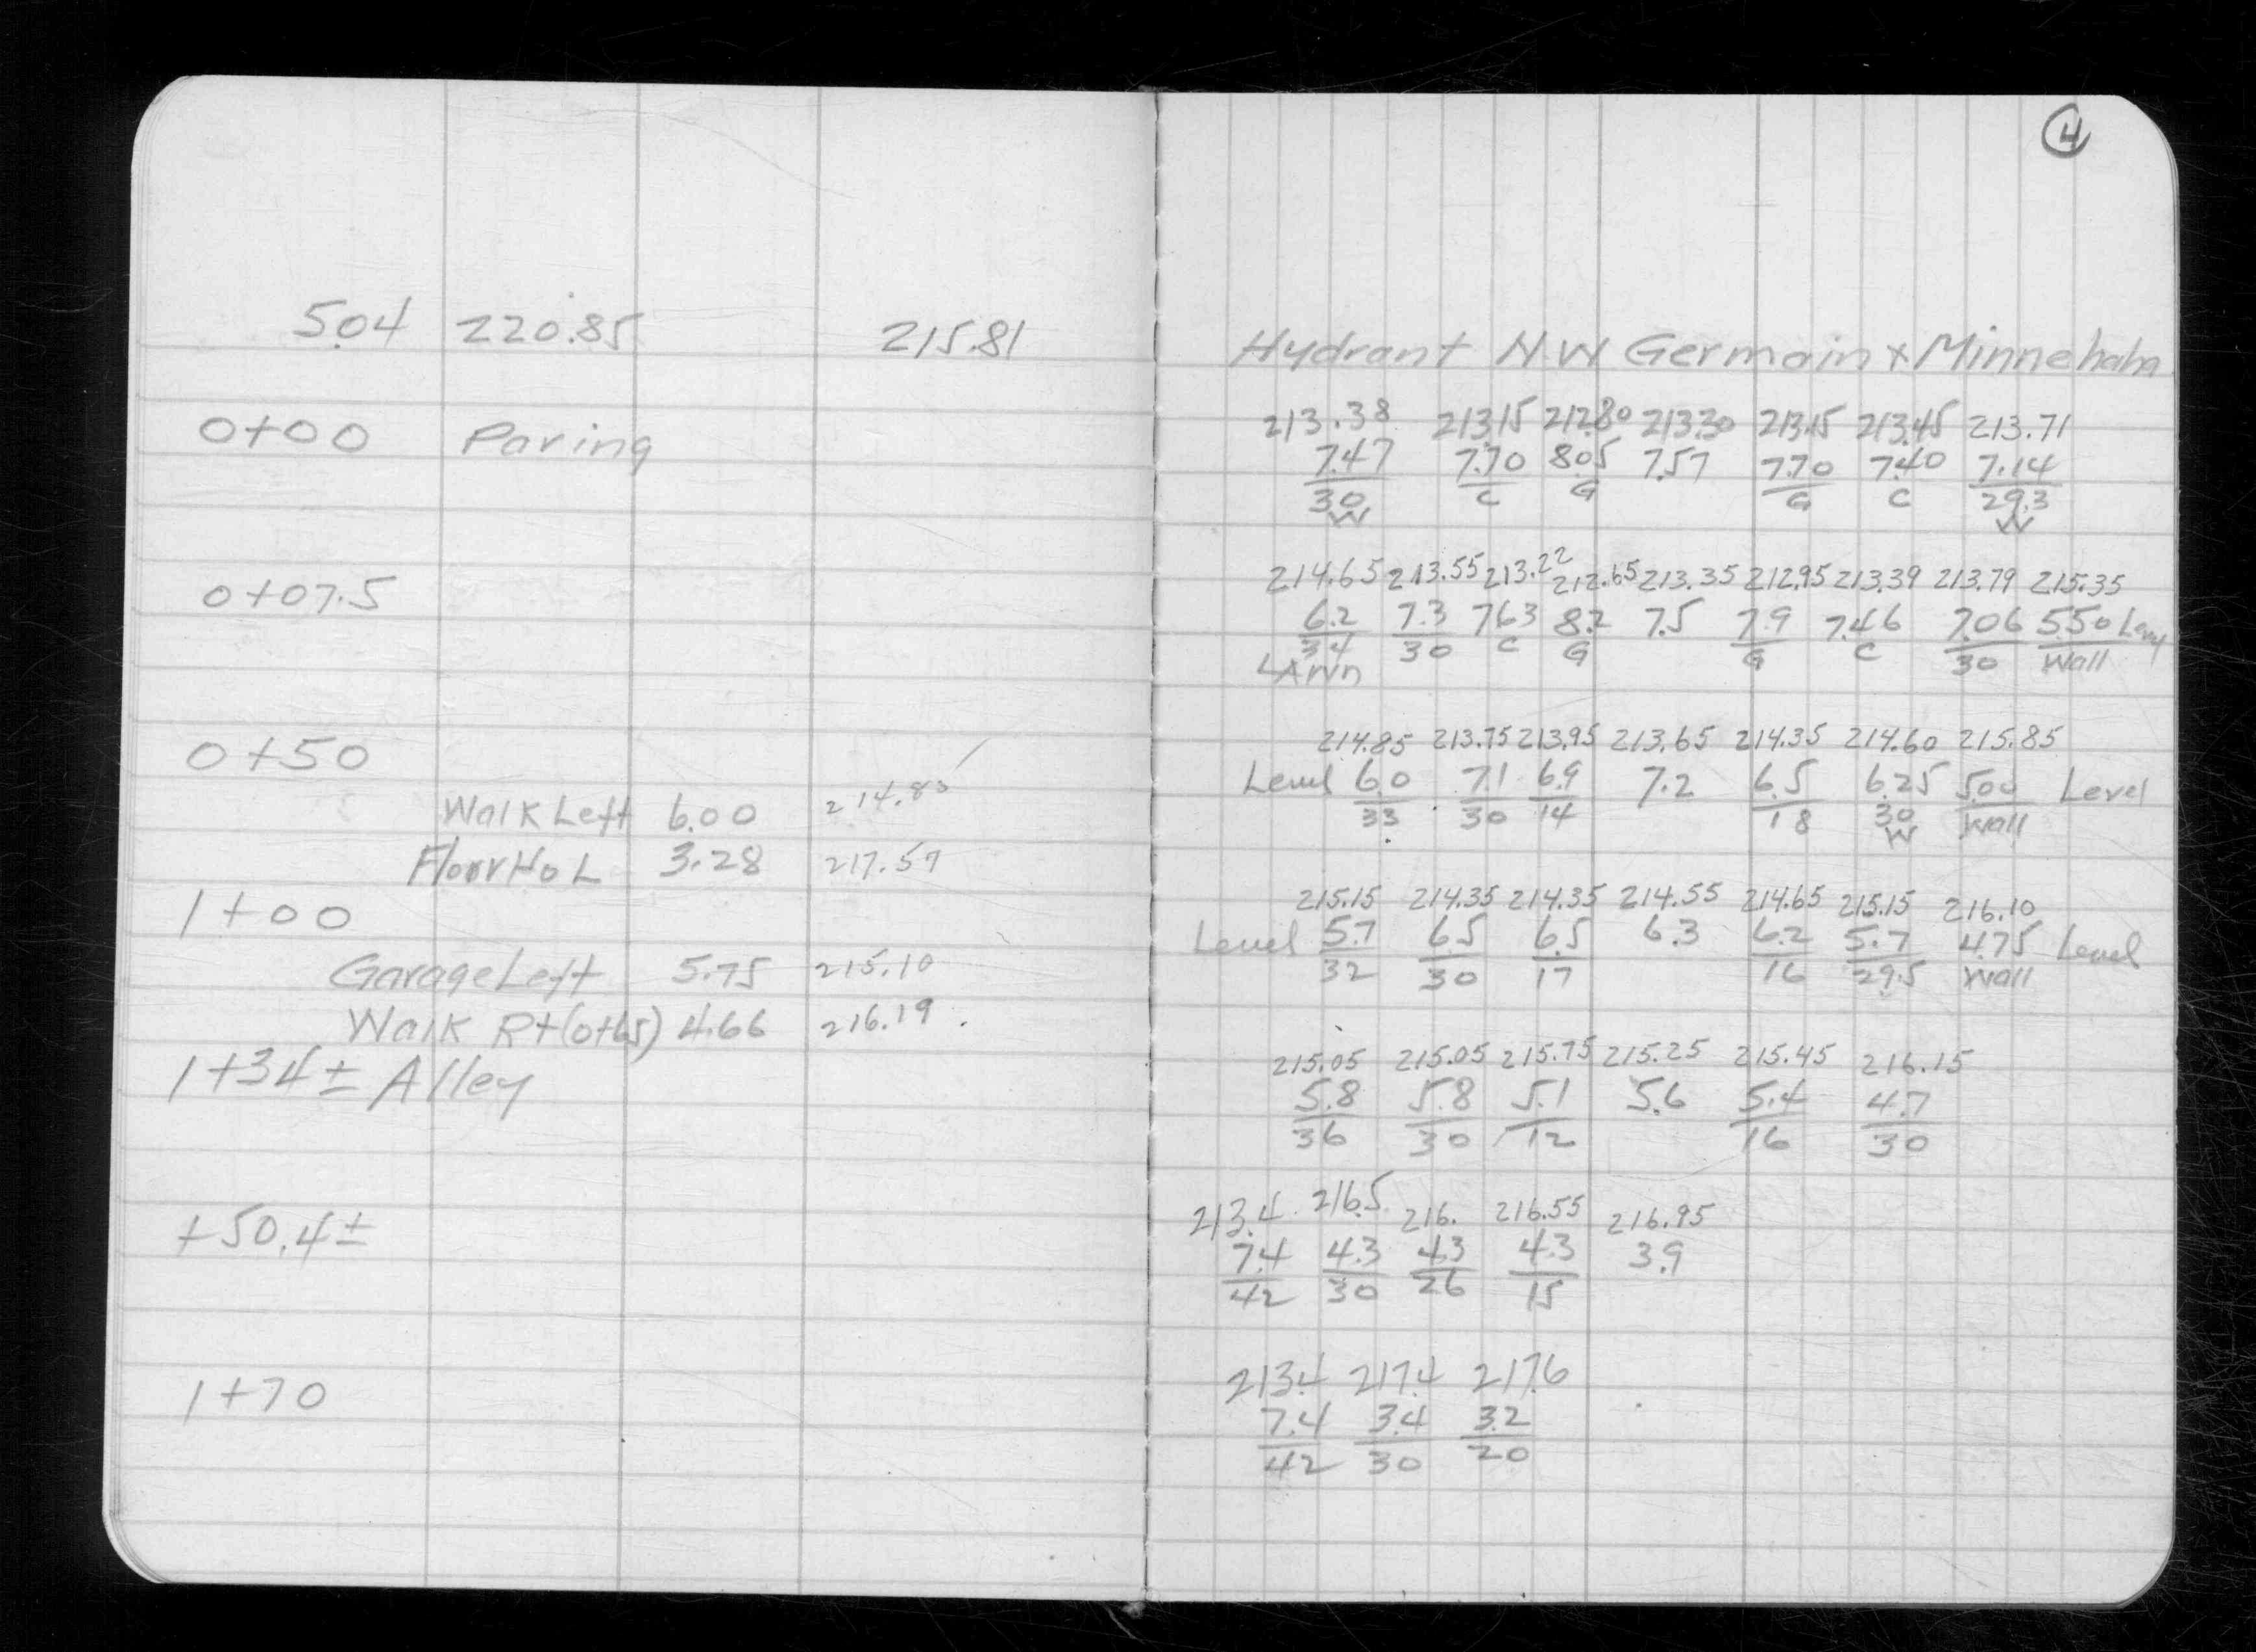 4
5.04 220.85 215.81 Hydrant N.W Germain x Minnehaha
213.38 213.15 212.80 213.30 213.15 213.45 213.71
0+00 Paving 7.47 7.70 8.05 7.57 7.70 7.40 7.14
30 C G G C 29.3
W W
214.65 213.55 213.22 212.65 213.35 212.95 213.39 213.79 215.35
0+07.5 6.2 7.3 7.63 8.2 7.5 7.9 7.46 7.06 5.50 Level
34 30 C G G C 30 Wall
LAWN
214.85 213.75 213.95 213.65 214.35 214.60 215.85
0+50 Level 6.0 7.1 6.9 7.2 6.5 6.25 5.00 Level
33 30 14 18 30 Wall
W
Walk Left 6.00 214.85
Floor Ho L 3.28 217.57
215.15 214.35 214.35 214.55 214.65 215.15 216.10
1+00 Level 5.7 6.5 6.5 6.3 6.2 5.7 4.75 Level
32 30 17 16 29.5 Wall
Garage Left 5.75 215.10
Walk Rt (0+65) 4.66 216.19
215.05 215.05 215.75 215.25 215.45 216.15
1+34± Alley 5.8 5.8 5.1 5.6 5.4 4.7
36 30 12 16 30
213.4 216.5 216. 216.55 216.95
+50.4± 7.4 4.3 4.3 4.3 3.9
42 30 26 15
213.4 217.4 217.6
1+70 7.4 3.4 3.2
42 30 20